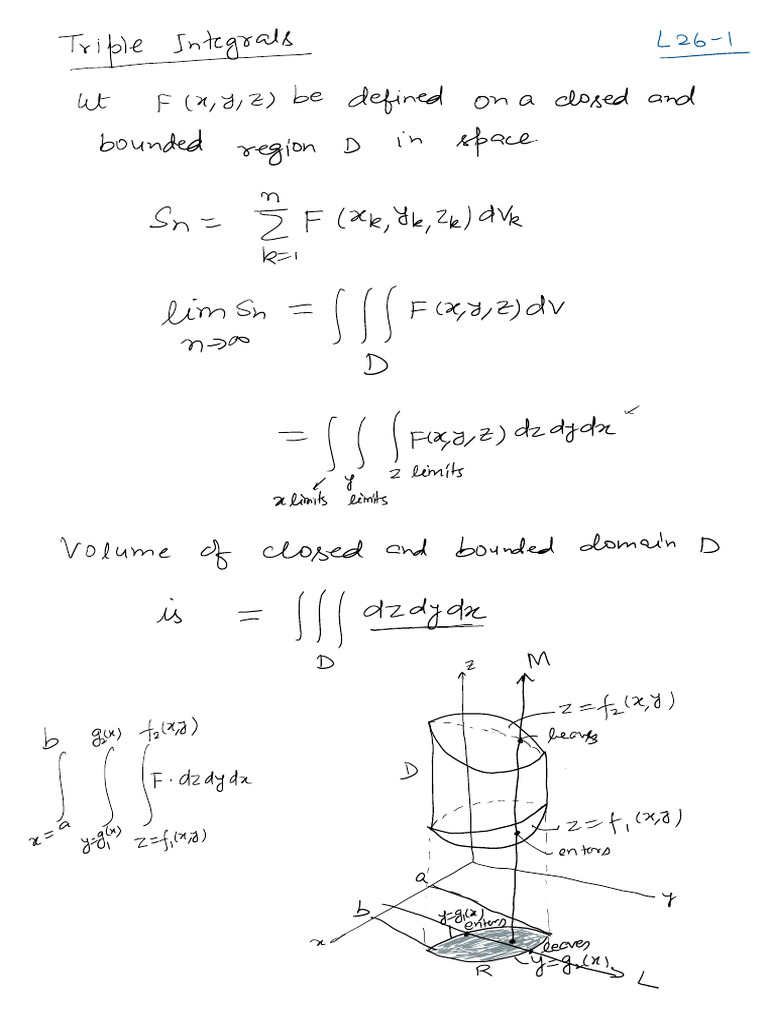 Triple Integrals
L26-1
Let F(x,y,z) be defined on a closed and
bounded region D in space.
Sn = n∑k=1 F(xk, yk, zk) dVk
lim n→∞ Sn = ∫∫∫D F(x,y,z) dV
= ∫∫∫ F(x,y,z) dz dy dx ✓
x limits y limits z limits
Volume of closed and bounded domain D
is = ∫∫∫D dz dy dx
b g2(x) f2(x,y)
∫ ∫ ∫ F. dz dy dx
x=a y=g1(x) z=f1(x,y)
z
M
z = f2(x,y)
leaves
D
z = f1(x,y)
enters
a
y
b
y=g1(x)
enters
x
leaves
R
y=g2(x)
L